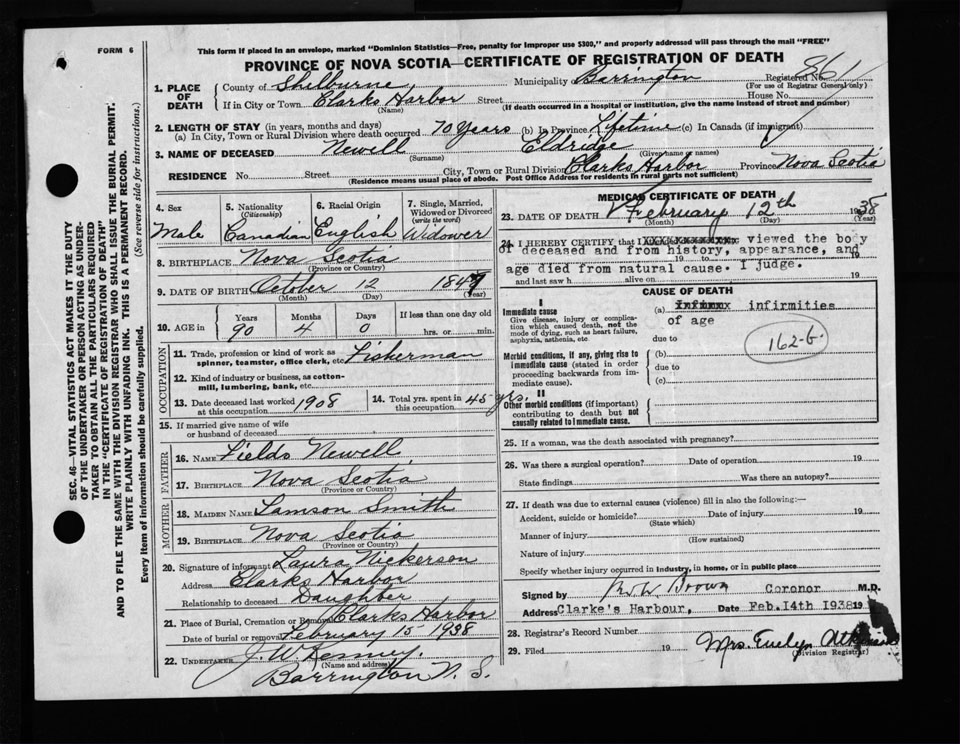 FORM 6
This form if placed in an envelope, marked "Dominion Statistics—Free, penalty for improper use $300," and properly addressed will pass through the mail "FREE"
PROVINCE OF NOVA SCOTIA—CERTIFICATE OF REGISTRATION OF DEATH
1. PLACE OF DEATH
County of Shelburne Municipality of Barrington Registered No. 861
(For use of Registrar General only)
If in City or Town Clarks Harbor Street House No.
(Name) (If death occurred in a hospital or institution, give the name instead of street and number)
2. LENGTH OF STAY (in years, months and days)
(a) In City, Town or Rural Division where death occurred 70 years (b) In Province Lifetime (c) In Canada (if immigrant)
3. NAME OF DECEASED Newell Eldridge
(Surname) (Given name or names)
RESIDENCE No. Street City, Town or Rural Division Clarks Harbor Province Nova Scotia
(Residence means usual place of abode. Post Office Address for residents in rural parts not sufficient)
SEC. 46—VITAL STATISTICS ACT MAKES IT THE DUTY
OF THE UNDERTAKER OR PERSON ACTING AS UNDERTAKER TO OBTAIN ALL THE PARTICULARS REQUIRED
IN THE "CERTIFICATE OF REGISTRATION OF DEATH"
AND TO FILE THE SAME WITH THE DIVISION REGISTRAR WHO SHALL ISSUE THE BURIAL PERMIT.
WRITE PLAINLY WITH UNFADING INK. THIS IS A PERMANENT RECORD.
Every item of information should be carefully supplied. (See reverse side for instructions.)
4. Sex
Male
5. Nationality
(Citizenship)
Canadian
6. Racial Origin
English
7. Single, Married, Widowed or Divorced
(write the word)
Widower
8. BIRTHPLACE Nova Scotia
(Province or Country)
9. DATE OF BIRTH October 12 1847
(Month) (Day) (Year)
10. AGE in Years Months Days If less than one day old
90 4 0 hrs. or min.
OCCUPATION
11. Trade, profession or kind of work as spinner, teamster, office clerk, etc. Fisherman
12. Kind of industry or business, as cotton-mill, lumbering, bank, etc.
13. Date deceased last worked at this occupation 1908
14. Total yrs. spent in this occupation 45 yrs.
15. If married give name of wife or husband of deceased
FATHER
16. NAME Fields Newell
17. BIRTHPLACE Nova Scotia
(Province or Country)
MOTHER
18. MAIDEN NAME Lamson Smith
19. BIRTHPLACE Nova Scotia
(Province or Country)
20. Signature of informant Laura Nickerson
Address Clarks Harbor
Relationship to deceased Daughter
21. Place of Burial, Cremation or Removal Clarks Harbor
Date of burial or removal February 15 1938
22. UNDERTAKER J. W. Kenney
(Name and address)
Barrington N. S.
MEDICAL CERTIFICATE OF DEATH
23. DATE OF DEATH February 12th 1938
(Month) (Day) (Year)
24. I HEREBY CERTIFY that I viewed the body
of deceased and from history, appearance, and
19 to 19
age died from natural cause. I judge.
and last saw h alive on 19
CAUSE OF DEATH
I
Immediate cause
Give disease, injury or complication which caused death, not the mode of dying, such as heart failure, asphyxia, asthenia, etc.
(a) infirmities
of age
due to
162-b.
Morbid conditions, if any, giving rise to immediate cause (stated in order proceeding backwards from immediate cause).
(b)
due to
(c)
II
Other morbid conditions (if important) contributing to death but not causally related to immediate cause.
25. If a woman, was the death associated with pregnancy?
26. Was there a surgical operation? Date of operation 19
State findings Was there an autopsy?
27. If death was due to external causes (violence) fill in also the following:—
Accident, suicide or homicide? Date of injury 19
(State which)
Manner of injury
(How sustained)
Nature of injury
Specify whether injury occurred in industry, in home, or in public place
Signed by Brown Coronor M.D.
Address Clarke's Harbour, Date Feb. 14th 1938 19
28. Registrar's Record Number
29. Filed 19 Mrs. Evelyn
(Division Registrar)